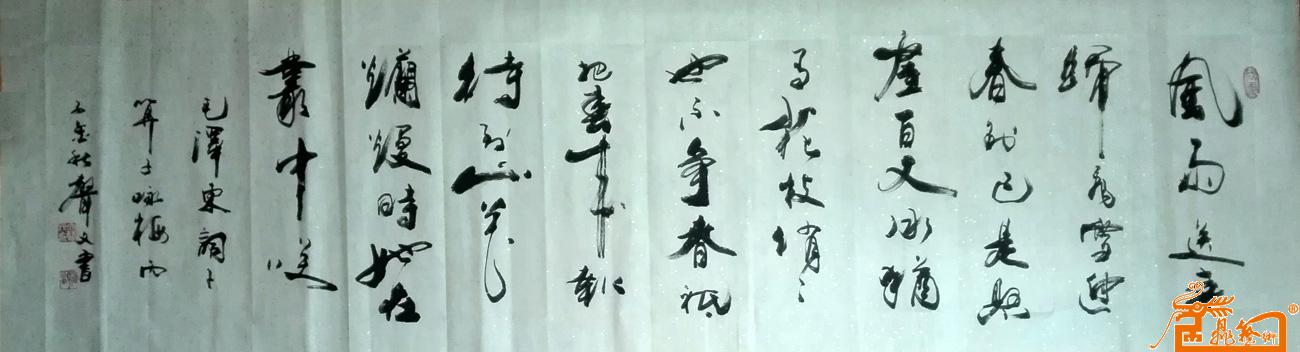 風雨送春
歸飛雪迎
春到已是懸
崖百丈冰猶
有花枝俏〻
也不爭春祇
把春來報
待到山花
爛熳時她在
叢中笑
毛澤東詞卜
算子咏梅丙
金秋聲文書